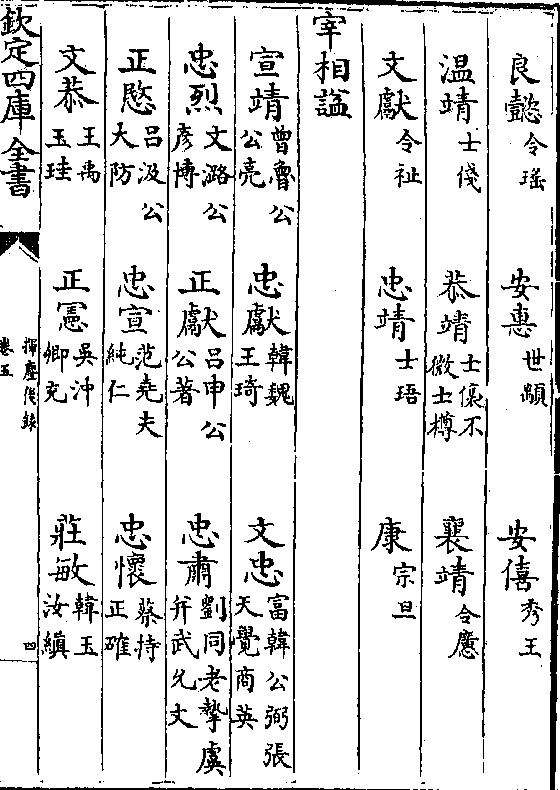 良懿 令瑤 安惠 世 安僖 秀王
温靖 士俴 恭靖 士㒟不微士樽 襄靖 令懬
文獻 令祉 忠靖 士珸 康 宗旦
宰相諡
宣靖 曾魯公公亮 忠獻 韓魏王琦 文忠 富韓公弼張天覺商英
忠烈 文潞公彥博 正獻 吕申公公著 忠肅 劉同老摯虞并武允文
正愍 吕汲公大防 忠宣 范堯夫純仁 忠懷 蔡持正確
文恭 王禹玉珪 正憲 吳沖卿充 莊敏 韓玉汝縝
欽定四庫全書
揮麈後録
卷五
四